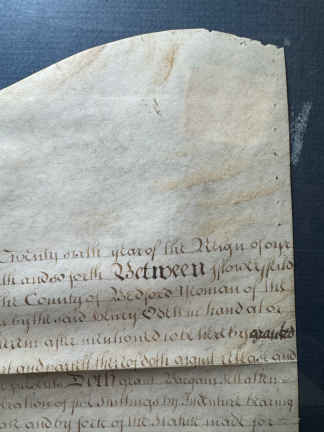 Twenty sixth year of the Reign of our
and so forth Between
the County of Bedford Yeoman of the
by the said Henry Odell in hand at or
herein after mentioned to be hereby granted
and parcell thereof doth grant release and
Doth grant Bargain sell alien
consideration of five shillings by Indenture bearing
and by force of the Statute made for